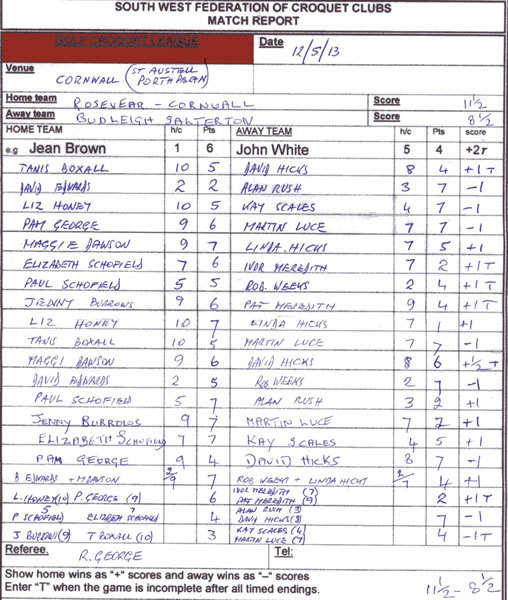 SOUTH WEST FEDERATION OF CROQUET CLUBS
MATCH REPORT
GOLF CROQUET LEAGUE Date 12/5/13
Venue CORNWALL (ST AUSTELL
PORTHPEAN)
Home team ROSEVEAR - CORNWALL Score 11½
Away team BUDLEIGH SALTERTON Score 8½
HOME TEAM h/c Pts AWAY TEAM h/c Pts score
e.g Jean Brown 1 6 John White 5 4 +2T
TANIS BOXALL 10 5 DAVID HICKS 8 4 +1 T
DAVID EDWARDS 2 2 ALAN RUSH 3 7 -1
LIZ HONEY 10 5 KAY SCALES 4 7 -1
PAM GEORGE 9 6 MARTIN LUCE 7 7 -1
MAGGIE DAWSON 9 7 LINDA HICKS 7 5 +1
ELIZABETH SCHOFIELD 7 6 IVOR MEREDITH 7 2 +1 T
PAUL SCHOFIELD 5 5 ROB WEEKS 2 4 +1 T
JENNY BURROWS 9 6 PAT MEREDITH 9 4 +1 T
LIZ HONEY 10 7 LINDA HICKS 7 1 +1
TANIS BOXALL 10 5 MARTIN LUCE 7 7 -1
MAGGI DAWSON 9 6 DAVID HICKS 8 6 +½ T
DAVID EDWARDS 2 5 ROB WEEKS 2 7 -1
PAUL SCHOFIELD 5 7 ALAN RUSH 3 2 +1
JENNY BURROWS 9 7 MARTIN LUCE 7 2 +1
ELIZABETH SCHOFIELD 7 7 KAY SCALES 4 5 +1
PAM GEORGE 9 4 DAVID HICKS 8 7 -1
D EDWARDS + M DAWSON 2/9 7 ROB WEEKS + LINDA HICKS 2/7 4 +1
L. HONEY (10) P. GEORGE (9) 6 IVOR MEREDITH (7) PAT MEREDITH (9) 2 +1 T
P SCHOFIELD 5 ELIZABETH SCHOFIELD 7 4 ALAN RUSH (3) DAVID HICKS (8) 7 -1
J BURROWS (9) T BOXALL (10) 3 KAY SCALES (4) MARTIN LUCE (7) 4 -1 T
Referee. R. GEORGE Tel:
Show home wins as "+" scores and away wins as "–" scores
Enter "T" when the game is incomplete after all timed endings.
11½ - 8½